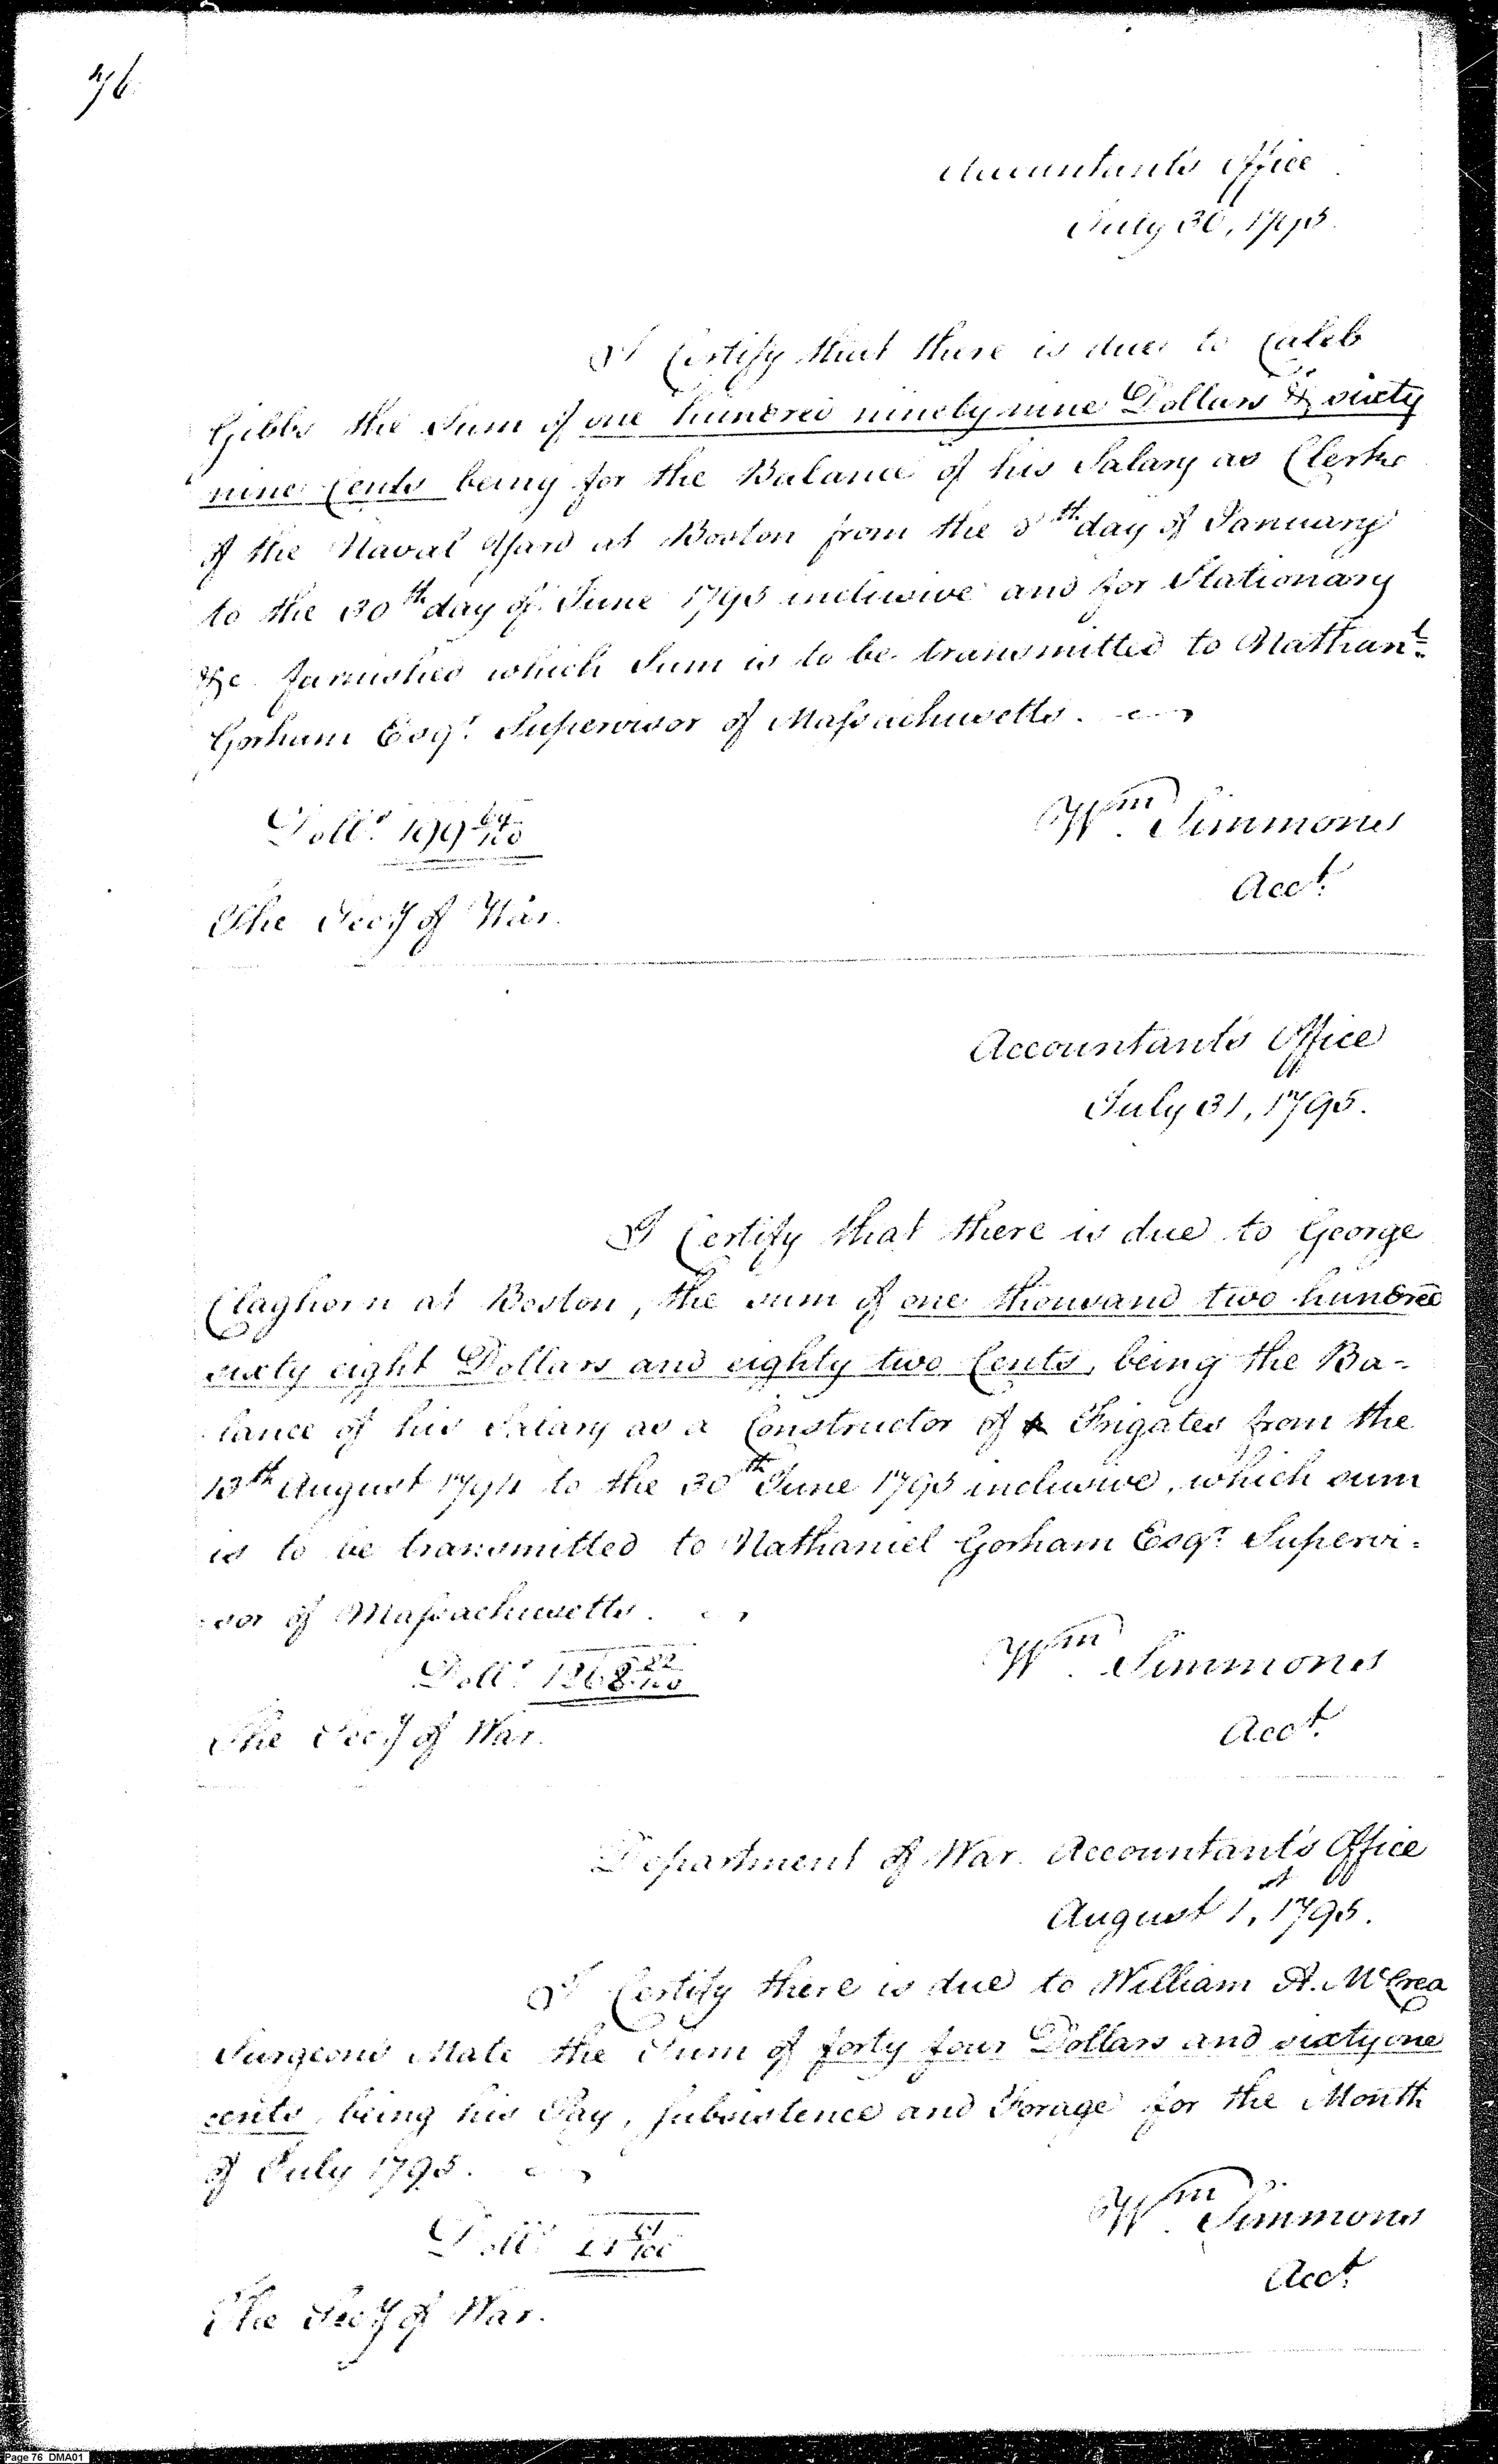 76.
Accountant's Office
July 30, 1795.
I Certify that there is due to Caleb
Gibbs the Sum of one hundred ninety nine Dollars & sixty
nine Cents being for the Balance of his Salary as Clerke
of the Naval Yard at Boston from the 8th day of January
to the 30th day of June 1795 inclusive and for Stationary
&c. furnished which Sum is to be transmitted to Nathanl.
Gorham Esqr. Supervisor of Massachusetts.
Dolls. 199 69/100
Wm. Simmons
Acct.
The Secy of War.
Accountant's Office
July 31, 1795.
I Certify that there is due to George
Claghorn at Boston, the sum of one thousand two hundred
sixty eight Dollars and eighty two Cents, being the Ba-
lance of his Salary as a Constructor of Frigates from the
13th August 1794 to the 30th June 1795 inclusive, which sum
is to be transmitted to Nathaniel Gorham Esqr. Supervi-
sor of Massachusetts.
Dolls. 1268 82/100
Wm. Simmons
Acct.
The Secy of War.
Department of War. Accountant's Office
August 1st, 1795.
I Certify there is due to William A. McCrea
Surgeons Mate the Sum of forty four Dollars and sixty one
cents, being his Pay, subsistence and Forage for the Month
of July 1795.
Dolls. 44 61/100
Wm. Simmons
Acct.
The Secy of War.
Page 76 DMA01